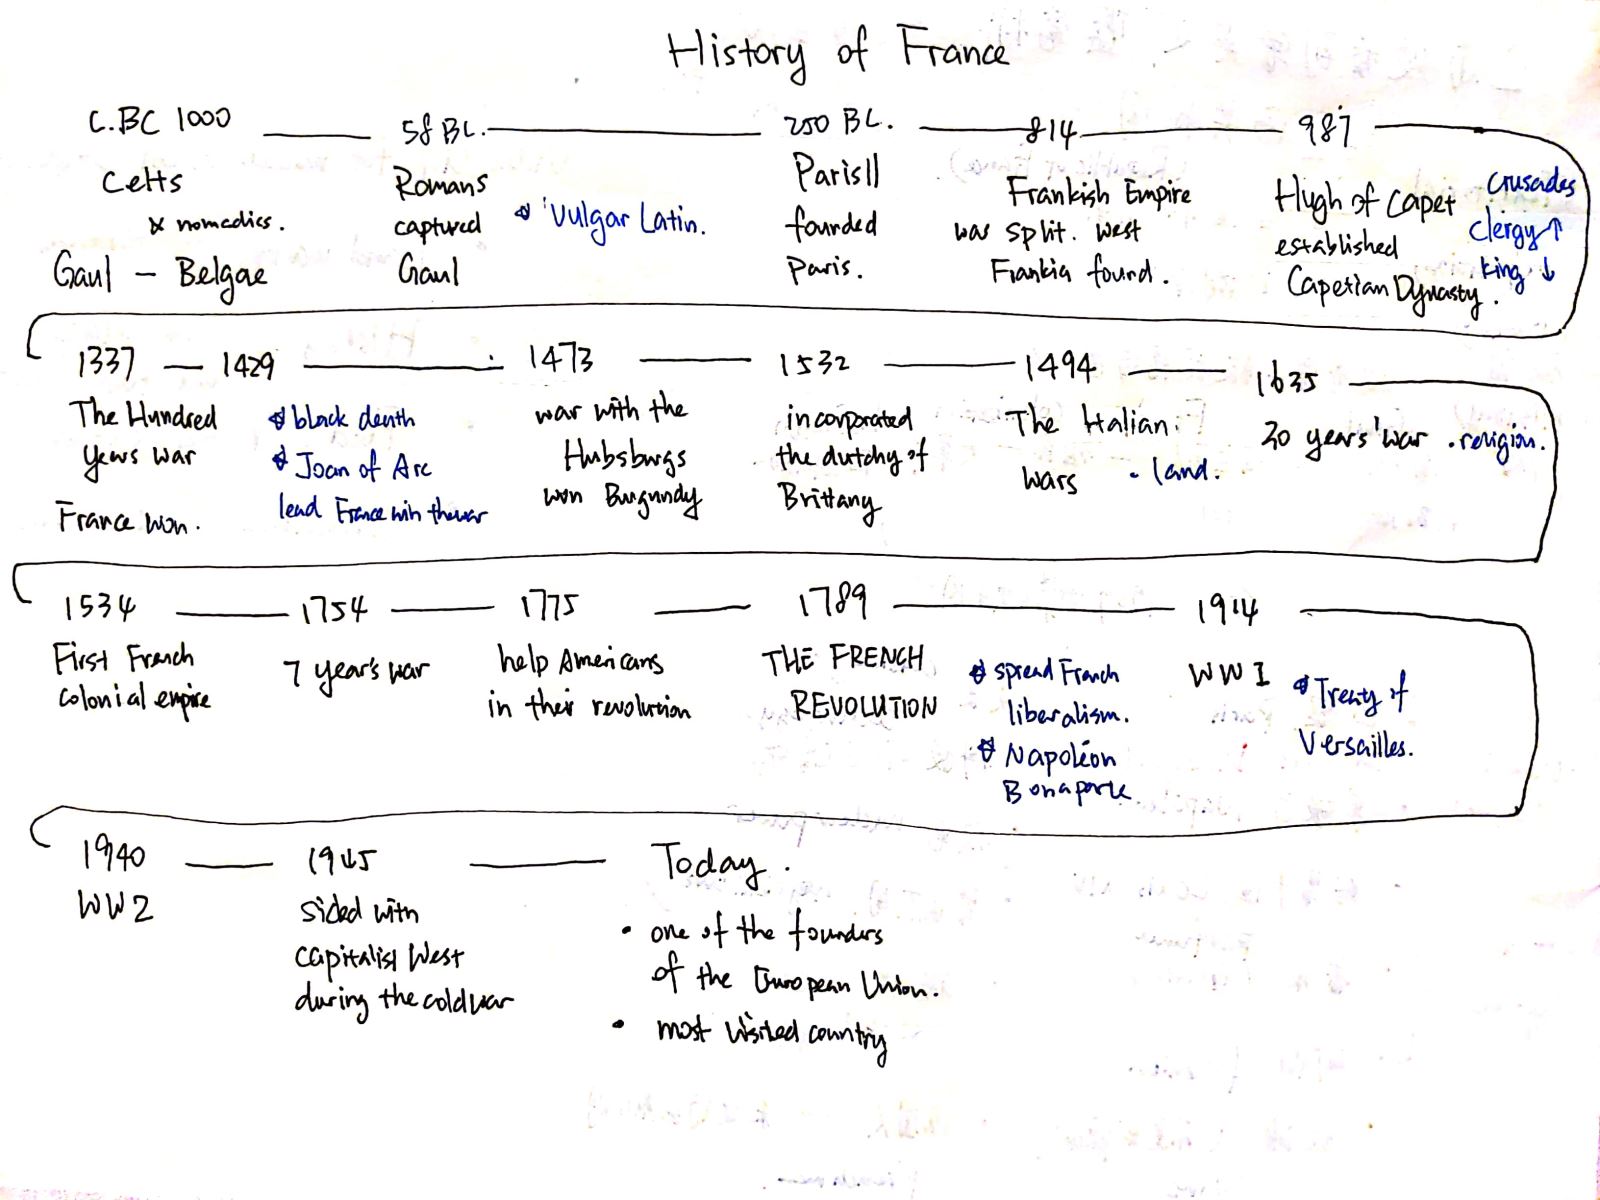 History of France
C.BC 1000
58 BC.
250 BC.
814
987
Celts
x nomadics.
Gaul - Belgae
Romans
captured
Gaul
'Vulgar Latin.
Parisii
founded
Paris.
Frankish Empire
was split. West
Frankia found.
Hugh of Capet
established
Capetian Dynasty.
Crusades
Clergy↑
King ↓
1337 — 1429
1473
1532
1494
1635
The Hundred
Years War
France won.
black death
Joan of Arc
lead France win the war
war with the
Hubsburgs
won Burgundy
incorporated
the dutchy of
Brittany
The Italian
wars
- land.
30 years' war
. religion.
1534
1754
1775
1789
1914
First French
colonial empire
7 year's war
help Americans
in their revolution
THE FRENCH
REVOLUTION
spread French
liberalism.
Napoléon
Bonaparte
WW I
Treaty of
Versailles.
1940
1945
Today.
WW2
sided with
capitalist West
during the cold war
• one of the founders
of the European Union.
• most visited country